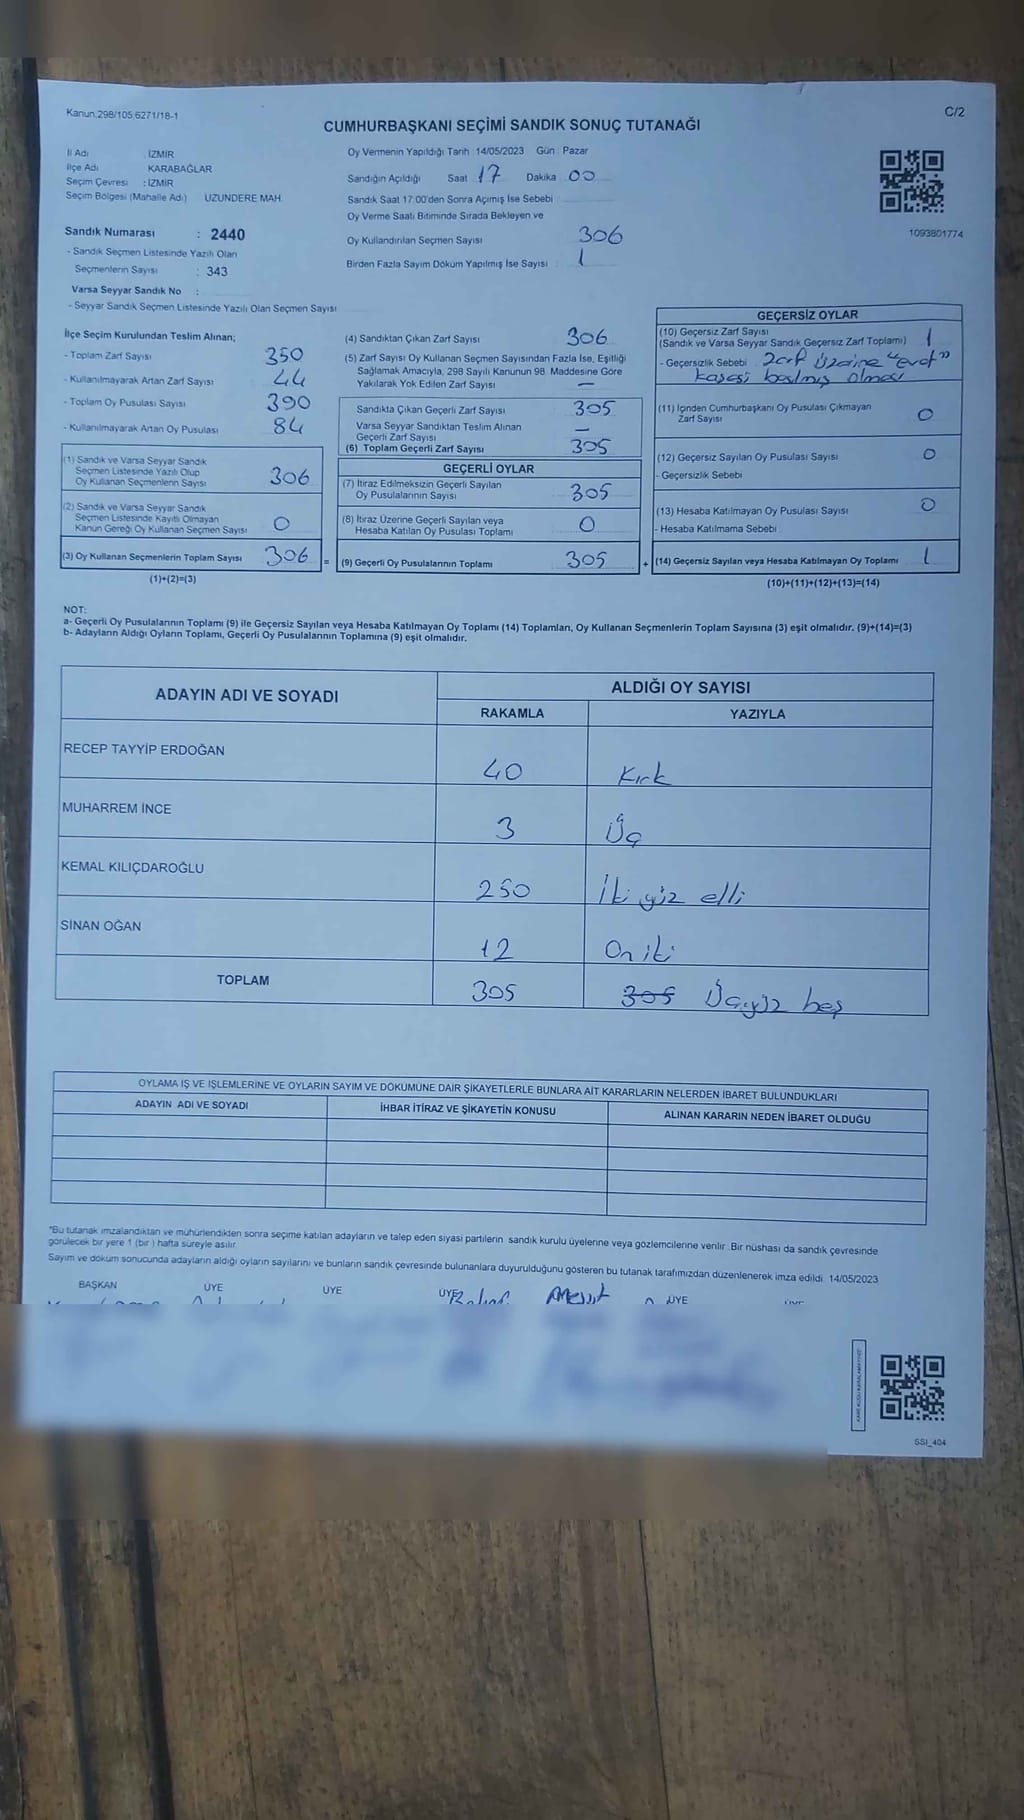 Kanun.298/105.6271/18-1
C/2
CUMHURBAŞKANI SEÇİMİ SANDIK SONUÇ TUTANAĞI
İl Adı : İZMİR
İlçe Adı : KARABAĞLAR
Seçim Çevresi : İZMİR
Seçim Bölgesi (Mahalle Adı) UZUNDERE MAH.
Oy Vermenin Yapıldığı Tarih 14/05/2023 Gün Pazar
Sandığın Açıldığı Saat 17 Dakika 00
Sandık Saat 17:00'den Sonra Açımış İse Sebebi
Oy Verme Saati Bitiminde Sırada Bekleyen ve
Oy Kullandırılan Seçmen Sayısı 306
Birden Fazla Sayım Döküm Yapılmış İse Sayısı 1
1093801774
Sandık Numarası : 2440
- Sandık Seçmen Listesinde Yazılı Olan
Seçmenlerin Sayısı : 343
Varsa Seyyar Sandık No :
- Seyyar Sandık Seçmen Listesinde Yazılı Olan Seçmen Sayısı
İlçe Seçim Kurulundan Teslim Alınan;
- Toplam Zarf Sayısı 350
- Kullanılmayarak Artan Zarf Sayısı 44
- Toplam Oy Pusulası Sayısı 390
- Kullanılmayarak Artan Oy Pusulası 84
(1) Sandık ve Varsa Seyyar Sandık
Seçmen Listesinde Yazılı Olup
Oy Kullanan Seçmenlerin Sayısı 306
(2) Sandık ve Varsa Seyyar Sandık
Seçmen Listesinde Kayıtlı Olmayan
Kanun Gereği Oy Kullanan Seçmen Sayısı 0
(3) Oy Kullanan Seçmenlerin Toplam Sayısı 306 =
(1)+(2)=(3)
(4) Sandıktan Çıkan Zarf Sayısı 306
(5) Zarf Sayısı Oy Kullanan Seçmen Sayısından Fazla İse, Eşitliği
Sağlamak Amacıyla, 298 Sayılı Kanunun 98. Maddesine Göre
Yakılarak Yok Edilen Zarf Sayısı —
Sandıkta Çıkan Geçerli Zarf Sayısı 305
Varsa Seyyar Sandıktan Teslim Alınan
Geçerli Zarf Sayısı —
(6) Toplam Geçerli Zarf Sayısı 305
GEÇERLİ OYLAR
(7) İtiraz Edilmeksizin Geçerli Sayılan
Oy Pusulalarının Sayısı 305
(8) İtiraz Üzerine Geçerli Sayılan veya
Hesaba Katılan Oy Pusulası Toplamı 0
(9) Geçerli Oy Pusulalarının Toplamı 305 +
GEÇERSİZ OYLAR
(10) Geçersiz Zarf Sayısı
(Sandık ve Varsa Seyyar Sandık Geçersiz Zarf Toplamı) 1
- Geçersizlik Sebebi Zarf üzerine "Evet"
kaşesi basılmış olması
(11) İçinden Cumhurbaşkanı Oy Pusulası Çıkmayan
Zarf Sayısı 0
(12) Geçersiz Sayılan Oy Pusulası Sayısı 0
- Geçersizlik Sebebi
(13) Hesaba Katılmayan Oy Pusulası Sayısı 0
- Hesaba Katılmama Sebebi
(14) Geçersiz Sayılan veya Hesaba Katılmayan Oy Toplamı 1
(10)+(11)+(12)+(13)=(14)
NOT:
a- Geçerli Oy Pusulalarının Toplamı (9) ile Geçersiz Sayılan veya Hesaba Katılmayan Oy Toplamı (14) Toplamları, Oy Kullanan Seçmenlerin Toplam Sayısına (3) eşit olmalıdır. (9)+(14)=(3)
b- Adayların Aldığı Oyların Toplamı, Geçerli Oy Pusulalarının Toplamına (9) eşit olmalıdır.
ADAYIN ADI VE SOYADI
ALDIĞI OY SAYISI
RAKAMLA YAZIYLA
RECEP TAYYİP ERDOĞAN 40 Kırk
MUHARREM İNCE 3 Üç
KEMAL KILIÇDAROĞLU 250 İki yüz elli
SİNAN OĞAN 12 On iki
TOPLAM 305 305 Üçyüz beş
OYLAMA İŞ VE İŞLEMLERİNE VE OYLARIN SAYIM VE DÖKÜMÜNE DAİR ŞİKAYETLERLE BUNLARA AİT KARARLARIN NELERDEN İBARET BULUNDUKLARI
ADAYIN ADI VE SOYADI İHBAR İTİRAZ VE ŞİKAYETİN KONUSU ALINAN KARARIN NEDEN İBARET OLDUĞU
*Bu tutanak imzalandıktan ve mühürlendikten sonra seçime katılan adayların ve talep eden siyasi partilerin sandık kurulu üyelerine veya gözlemcilerine verilir. Bir nüshası da sandık çevresinde
görülecek bir yere 1 (bir) hafta süreyle asılır.
Sayım ve döküm sonucunda adayların aldığı oyların sayılarını ve bunların sandık çevresinde bulunanlara duyurulduğunu gösteren bu tutanak tarafımızdan düzenlenerek imza edildi. 14/05/2023
BAŞKAN ÜYE ÜYE ÜYE ÜYE
SSI_404